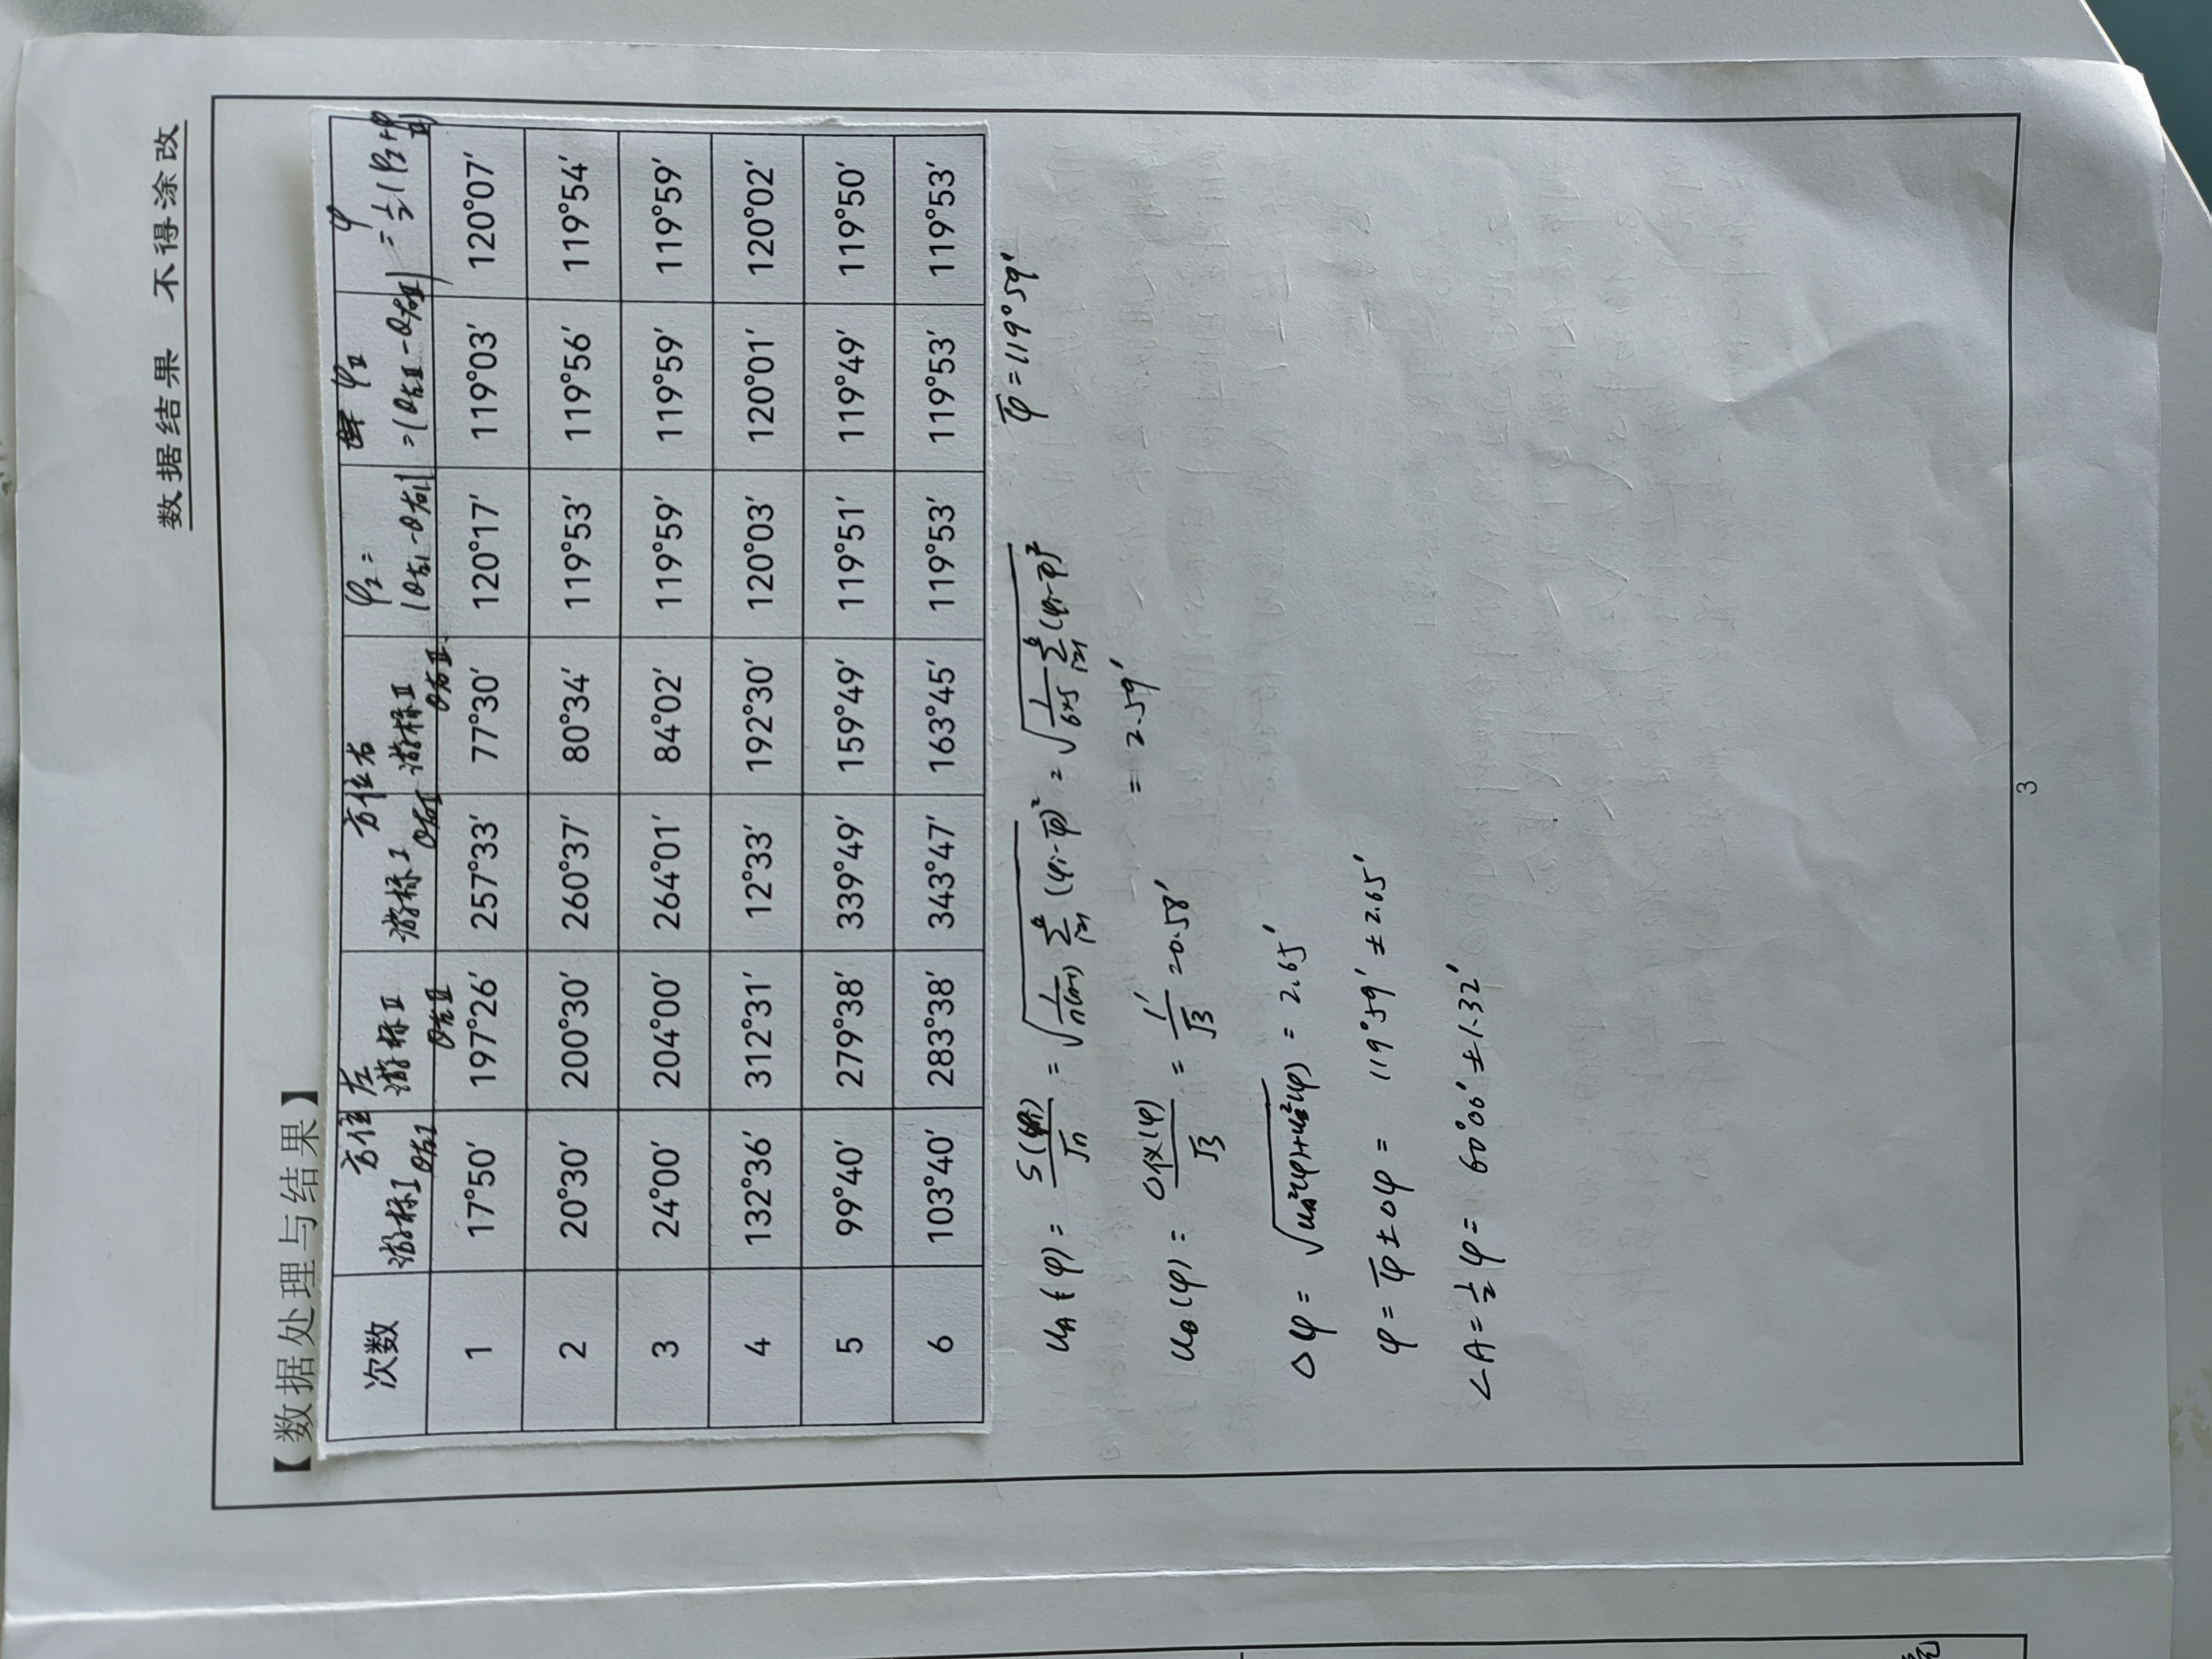 数据结果 不得涂改
【数据处理与结果】
次数 方位左 方位右 φ₁= φ₂ φ
游标Ⅰ θ左Ⅰ 游标Ⅱ θ左Ⅱ 游标Ⅰ θ右Ⅰ 游标Ⅱ θ右Ⅱ |θ左Ⅰ-θ右Ⅰ| =|θ左Ⅱ-θ右Ⅱ| =½(φ₁+φ Ⅱ)
1 17°50′ 197°26′ 257°33′ 77°30′ 120°17′ 119°03′ 120°07′
2 20°30′ 200°30′ 260°37′ 80°34′ 119°53′ 119°56′ 119°54′
3 24°00′ 204°00′ 264°01′ 84°02′ 119°59′ 119°59′ 119°59′
4 132°36′ 312°31′ 12°33′ 192°30′ 120°03′ 120°01′ 120°02′
5 99°40′ 279°38′ 339°49′ 159°49′ 119°51′ 119°49′ 119°50′
6 103°40′ 283°38′ 343°47′ 163°45′ 119°53′ 119°53′ 119°53′
φ̄=119°59′
u_A(φ) = S(φ̄)/√n = √(1/n(n-1) Σ⁶ᵢ₌₁ (φᵢ-φ̄)²) = √(1/6×5 Σ⁶ᵢ₌₁ (φᵢ-φ̄)²)
= 2.59′
u_B(φ) = Δ仪(φ)/√3 = 1′/√3 = 0.58′
Δφ = √(u_A²(φ)+u_B²(φ)) = 2.65′
φ = φ̄ ± Δφ = 119°59′ ± 2.65′
∠A = ½φ = 60°00′ ± 1.32′
3